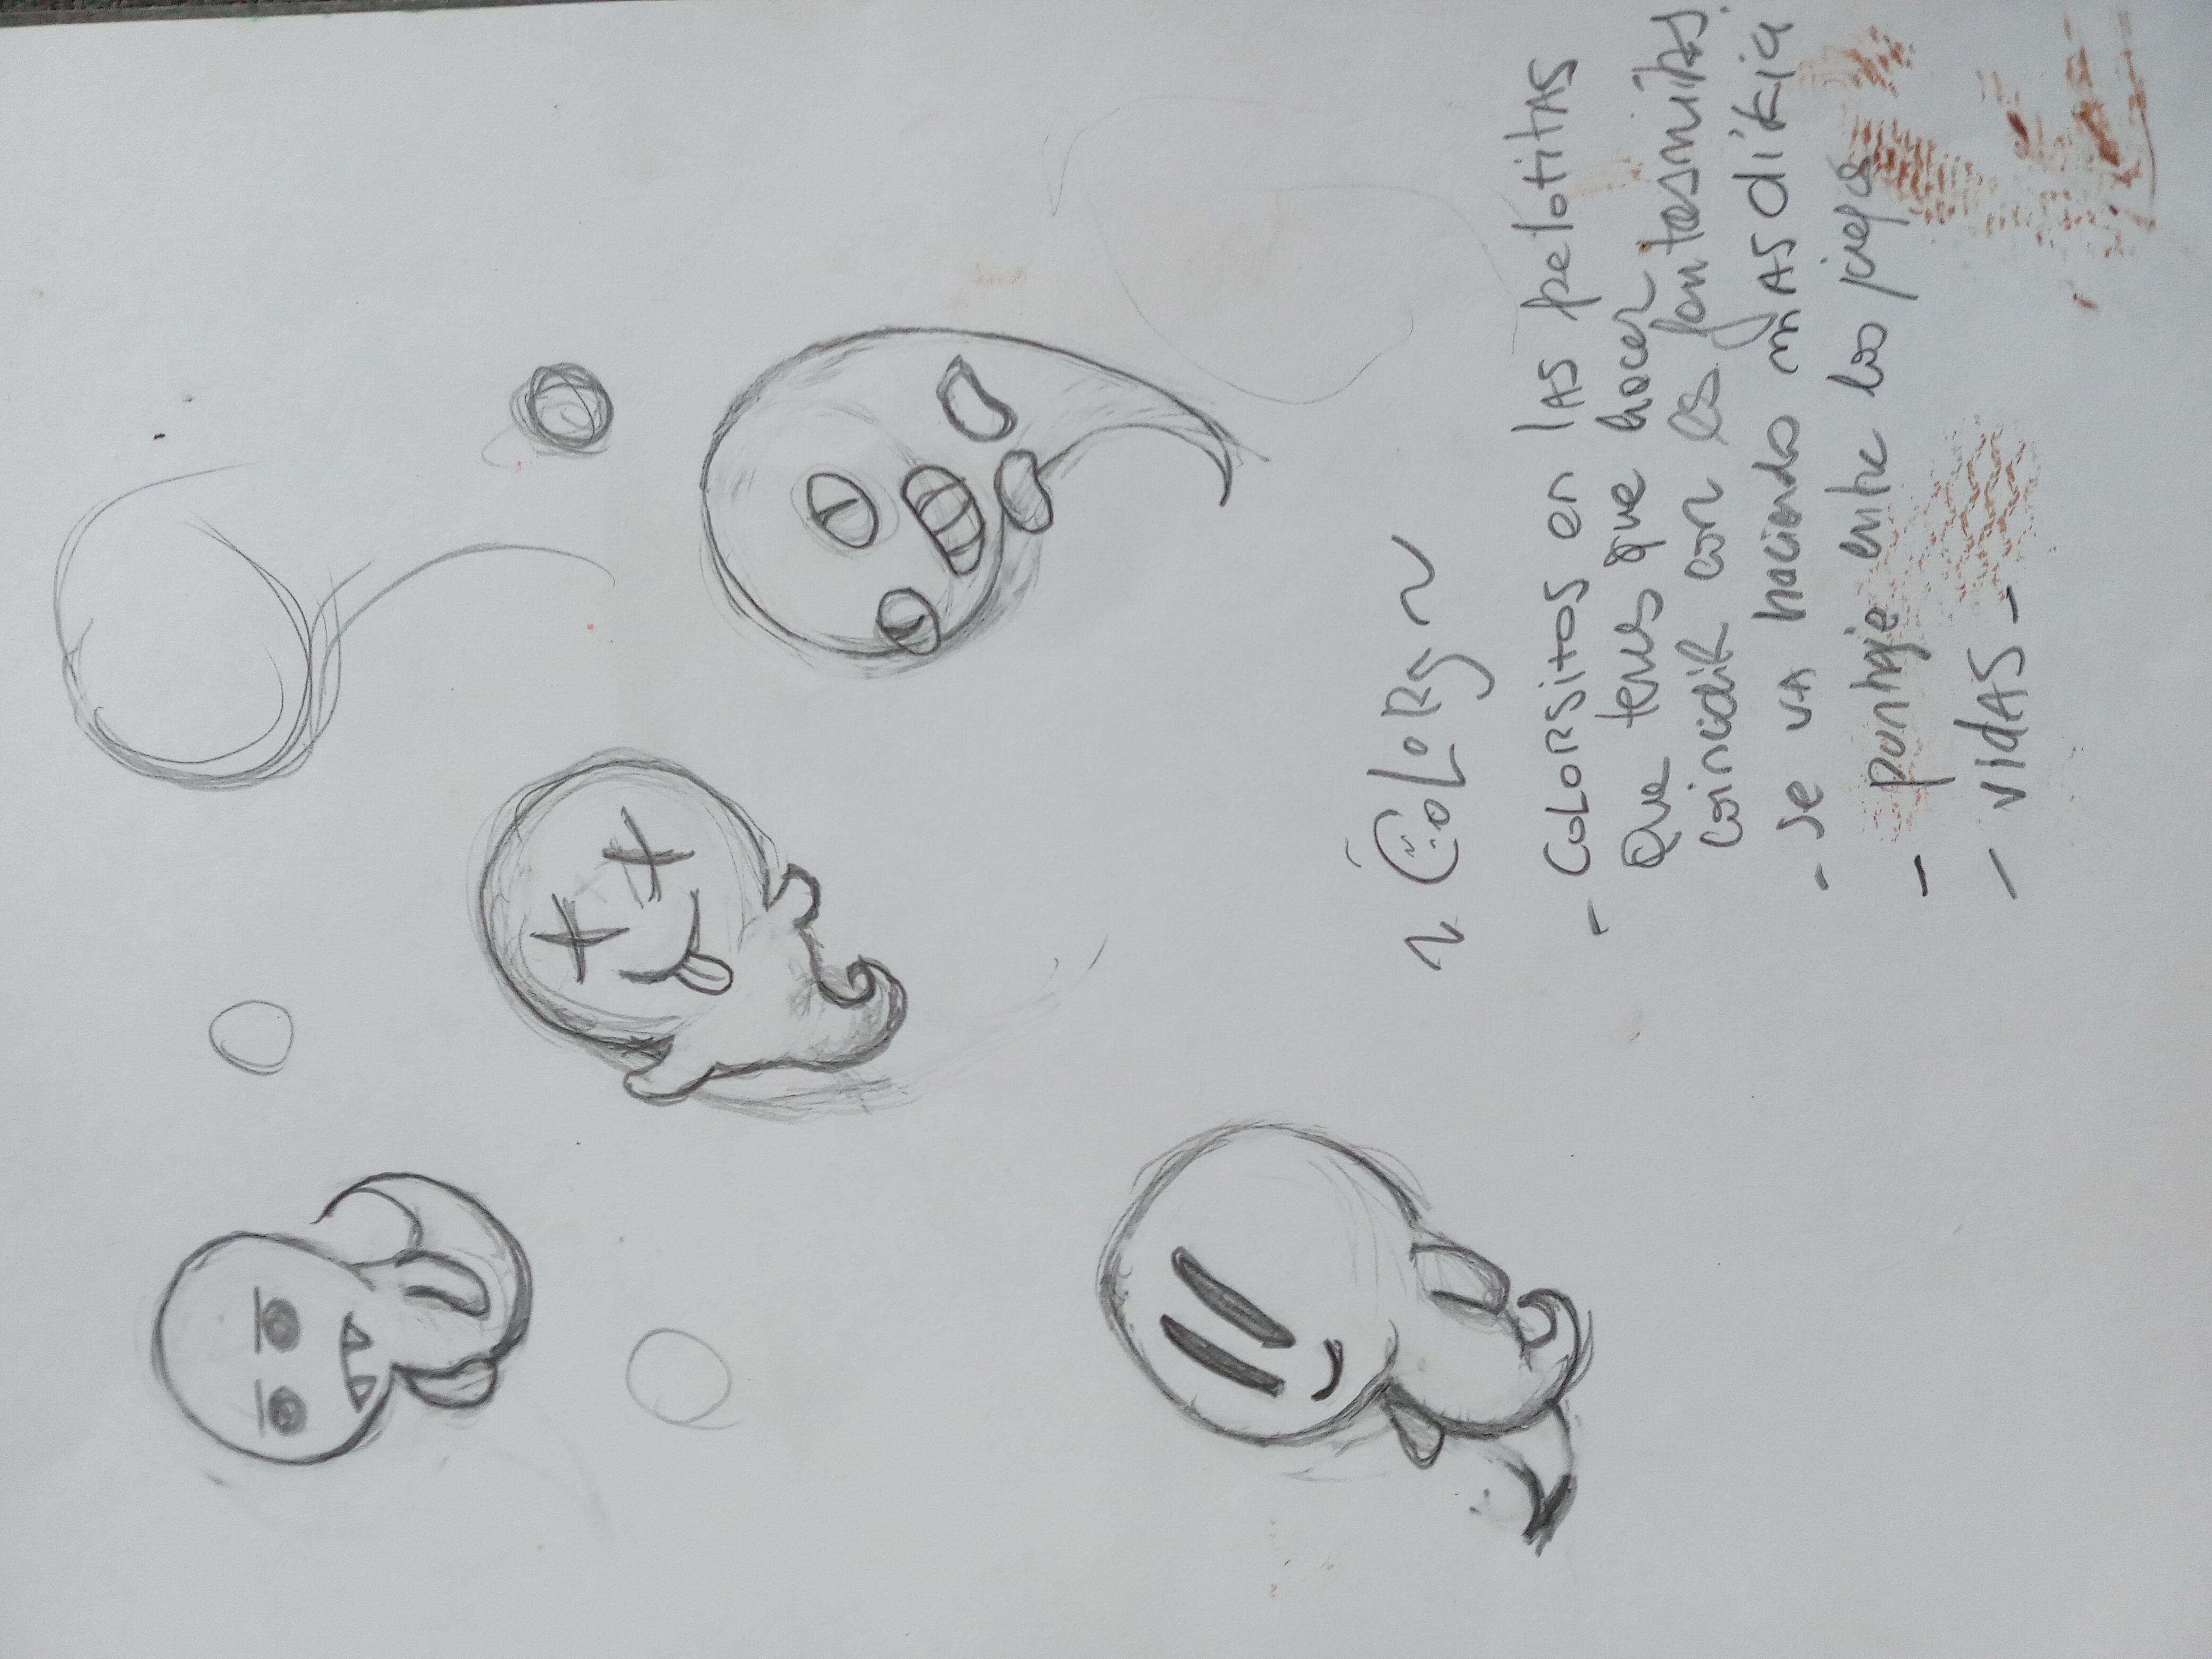 ~ CoLoRs ~
- COLORSITOS en LAS pelotitas
Que tenes que hacer
coincidir con los fantasmitas.
- se va haciendo mAS dificil
- puntaje entre los juegos
- VIdAS -